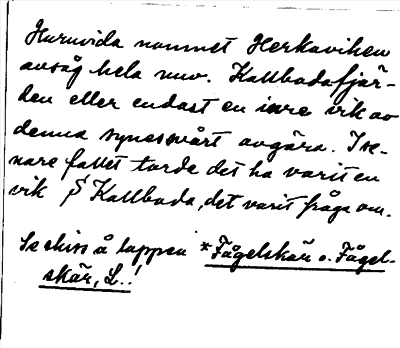 Huruvida namnet Herkaviken
avsåg hela nuv. Kallbodafjär-
den eller endast en inre vik av
denna synes svårt avgöra. I se-
nare fallet torde det ha varit en
vik S Kallboda, det varit fråga om.
Se skiss å lappen *Fågelskär o. Fågel-
skär, L..!